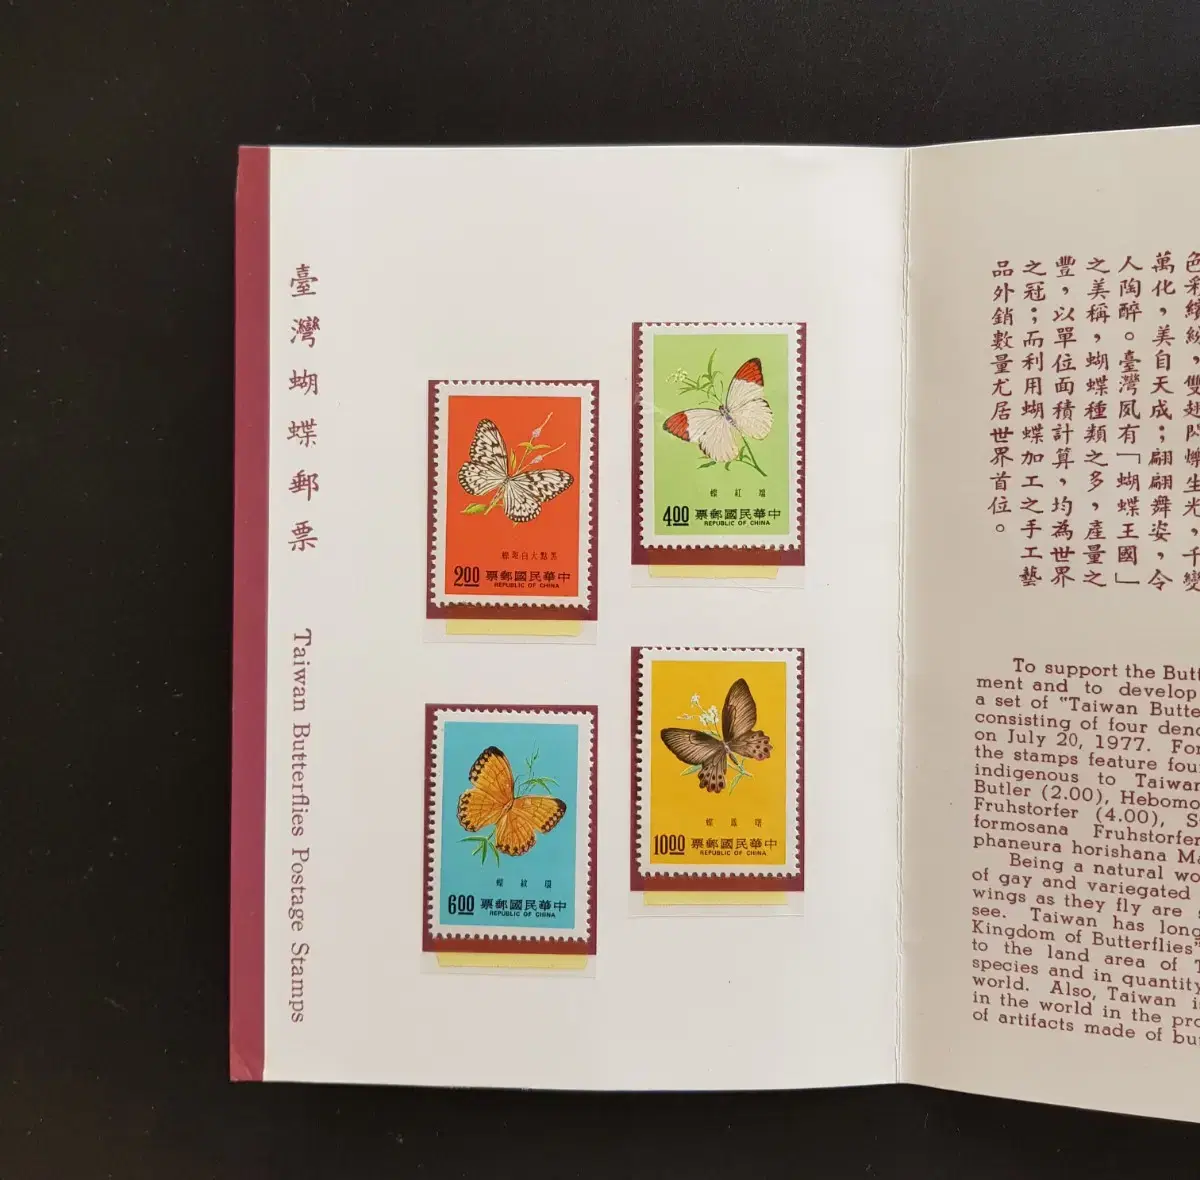 臺灣蝴蝶郵票
Taiwan Butterflies Postage Stamps
黑點大白斑蝶
2.00 中華民國郵票
REPUBLIC OF CHINA
端紅蝶
4.00 中華民國郵票
REPUBLIC OF CHINA
環紋蝶
6.00 中華民國郵票
REPUBLIC OF CHINA
曙鳳蝶
10.00 中華民國郵票
REPUBLIC OF CHINA
色彩繽紛，雙翅閃爍生光，千變
萬化，美自天成；翩翩舞姿，令
人陶醉。臺灣夙有「蝴蝶王國」
之美稱，蝴蝶種類之多，產量之
豐，以單位面積計算，均為世界
之冠；而利用蝴蝶加工之手工藝
品外銷數量尤居世界首位。
To support the
ment and to develop
a set of "Taiwan
consisting of four
on July 20, 1977.
the stamps feature
indigenous to Taiwan
Butler (2.00),
Fruhstorfer (4.00),
formosana Fruhstorfer
phaneura horishana
Being a natural
of gay and variegated
wings as they fly are
see. Taiwan has long
Kingdom of Butterflies"
to the land area of
species and in quantity
world. Also, Taiwan
in the world in the
of artifacts made of